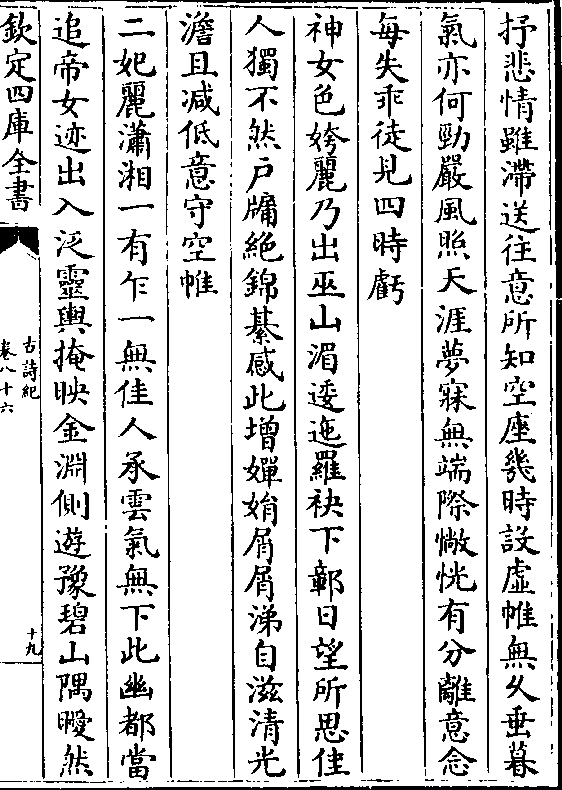 抒悲情雖滯送往意所知空座幾時設虛帷無久垂暮
氣亦何勁嚴風照天涯夢寐無端際惝怳有分離意念
每失乖徒見四時虧
神女色姱麗乃出巫山湄逶迤羅袂下鄣日望所思佳
人獨不然戶牖絕錦綦感此增嬋娟屑屑涕自滋清光
澹且减低意守空帷
二妃麗瀟湘一有乍一無佳人承雲氣無下此幽都當
追帝女迹出入泛靈輿掩映金淵側遊豫碧山隅曖然
欽定四庫全書
古詩紀
卷八十六
十九